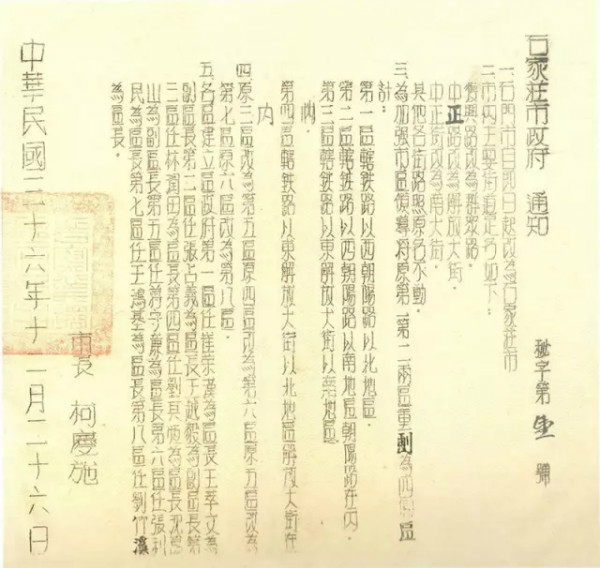 石家莊市政府 通知
秘字第 號
一.石門市自即日起改為石家莊市
二.市內主要街道定名如下:
復興路改為解放路.
中正路改為解放大街.
中正街改為南大街.
其他各街路照原名不動.
三.為加强市區領導將原第一第二兩區重劃為四個區
計:
第一區轄鉄路以西朝陽路以北地區.
第二區轄鉄路以西朝陽路以南地區朝陽路在內.
第三區轄鉄路以東解放大街以南地區
第四區轄鉄路以東解放大街以北地區解放大街在
內
四.原三區改為第五區原四區改為第六區原五區改為
第七區原六區改為第八區.
五.各區建立區政府第一區任崔榮漢為區長王華文為
副區長第二區任張占義為區長于 為副區長第
三區任林潤田為區長第四區任劉其 為區長
山為副區長第五區任 為區長第六區任張利
民為區長第七區任王鴻基為區長第八區任劉竹溪
為區長.
市長 柯慶施
中華民國三十六年十一月二十六日